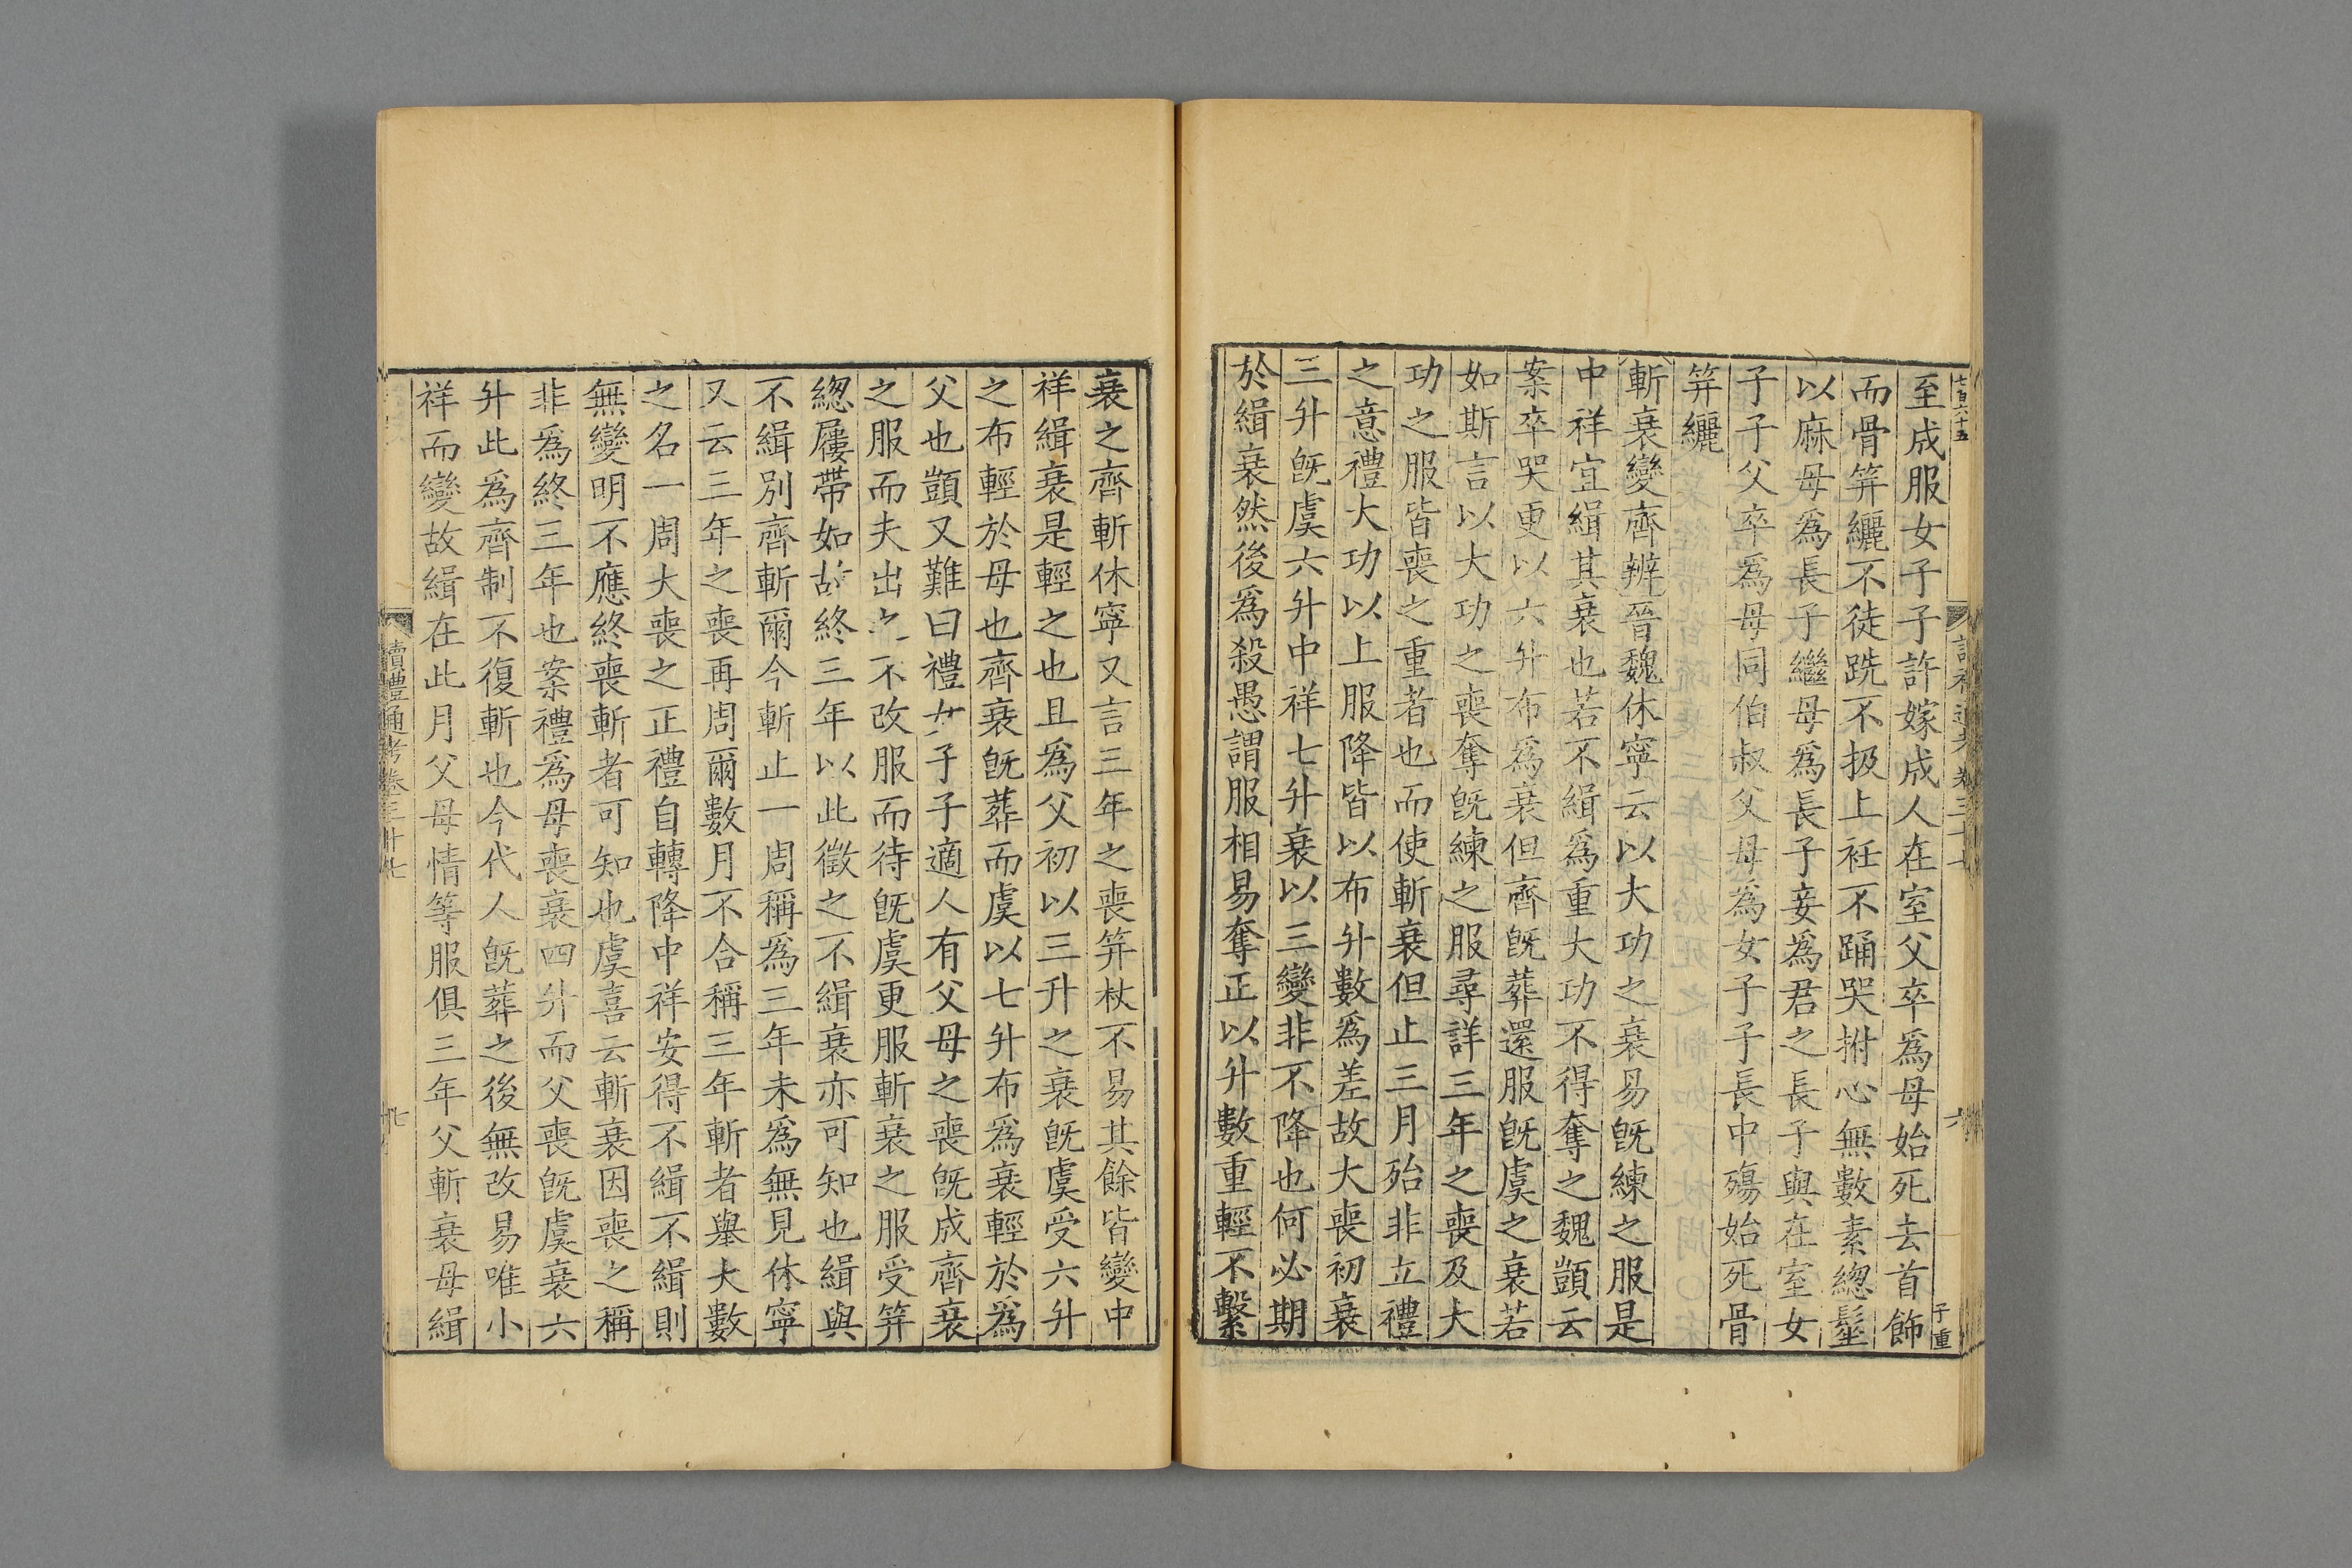 七百六十五
子重
至成服女子子許嫁成人在室父卒爲母始死去首飾
而骨筓纚不徒跣不扱上衽不踊哭拊心無數素緦髽
以麻母爲長子繼母爲長子妾爲君之長子與在室女
子子父卒爲母同伯叔父母爲女子子長中殤始死骨
筓纚
斬衰變齊辨晉魏休寧云以大功之衰易旣練之服是
中祥宜緝其衰也若不緝爲重大功不得奪之魏顗云
案卒哭更以六升布爲衰但齊旣葬還服旣虞之衰若
如斯言以大功之喪奪旣練之服尋詳三年之喪及大
功之服皆喪之重者也而使斬衰但止三月殆非立禮
之意禮大功以上服降皆以布升數爲差故大喪初衰
三升旣虞六升中祥七升衰以三變非不降也何必期
於緝衰然後爲殺愚謂服相易奪正以升數重輕不繫
衰之齊斬休寧又言三年之喪筓杖不易其餘皆變中
祥緝衰是輕之也且爲父初以三升之衰旣虞受六升
之布輕於母也齊衰旣葬而虞以七升布爲衰輕於爲
父也顗又難曰禮女子子適人有父母之喪旣成齊衰
之服而夫出之不改服而待旣虞更服斬衰之服受筓
緦屨帶如故終三年以此徵之不緝衰亦可知也緝與
不緝別齊斬爾今斬止一周稱爲三年未爲無見休寧
又云三年之喪再周爾數月不合稱三年斬者舉大數
之名一周大喪之正禮自轉降中祥安得不緝不緝則
無變明不應終喪斬者可知也虞喜云斬衰因喪之稱
非爲終三年也案禮爲母喪衰四升而父喪旣虞衰六
升此爲齊制不復斬也今代人旣葬之後無改易唯小
祥而變故緝在此月父母情等服俱三年父斬衰母緝
讀禮通考卷三十七